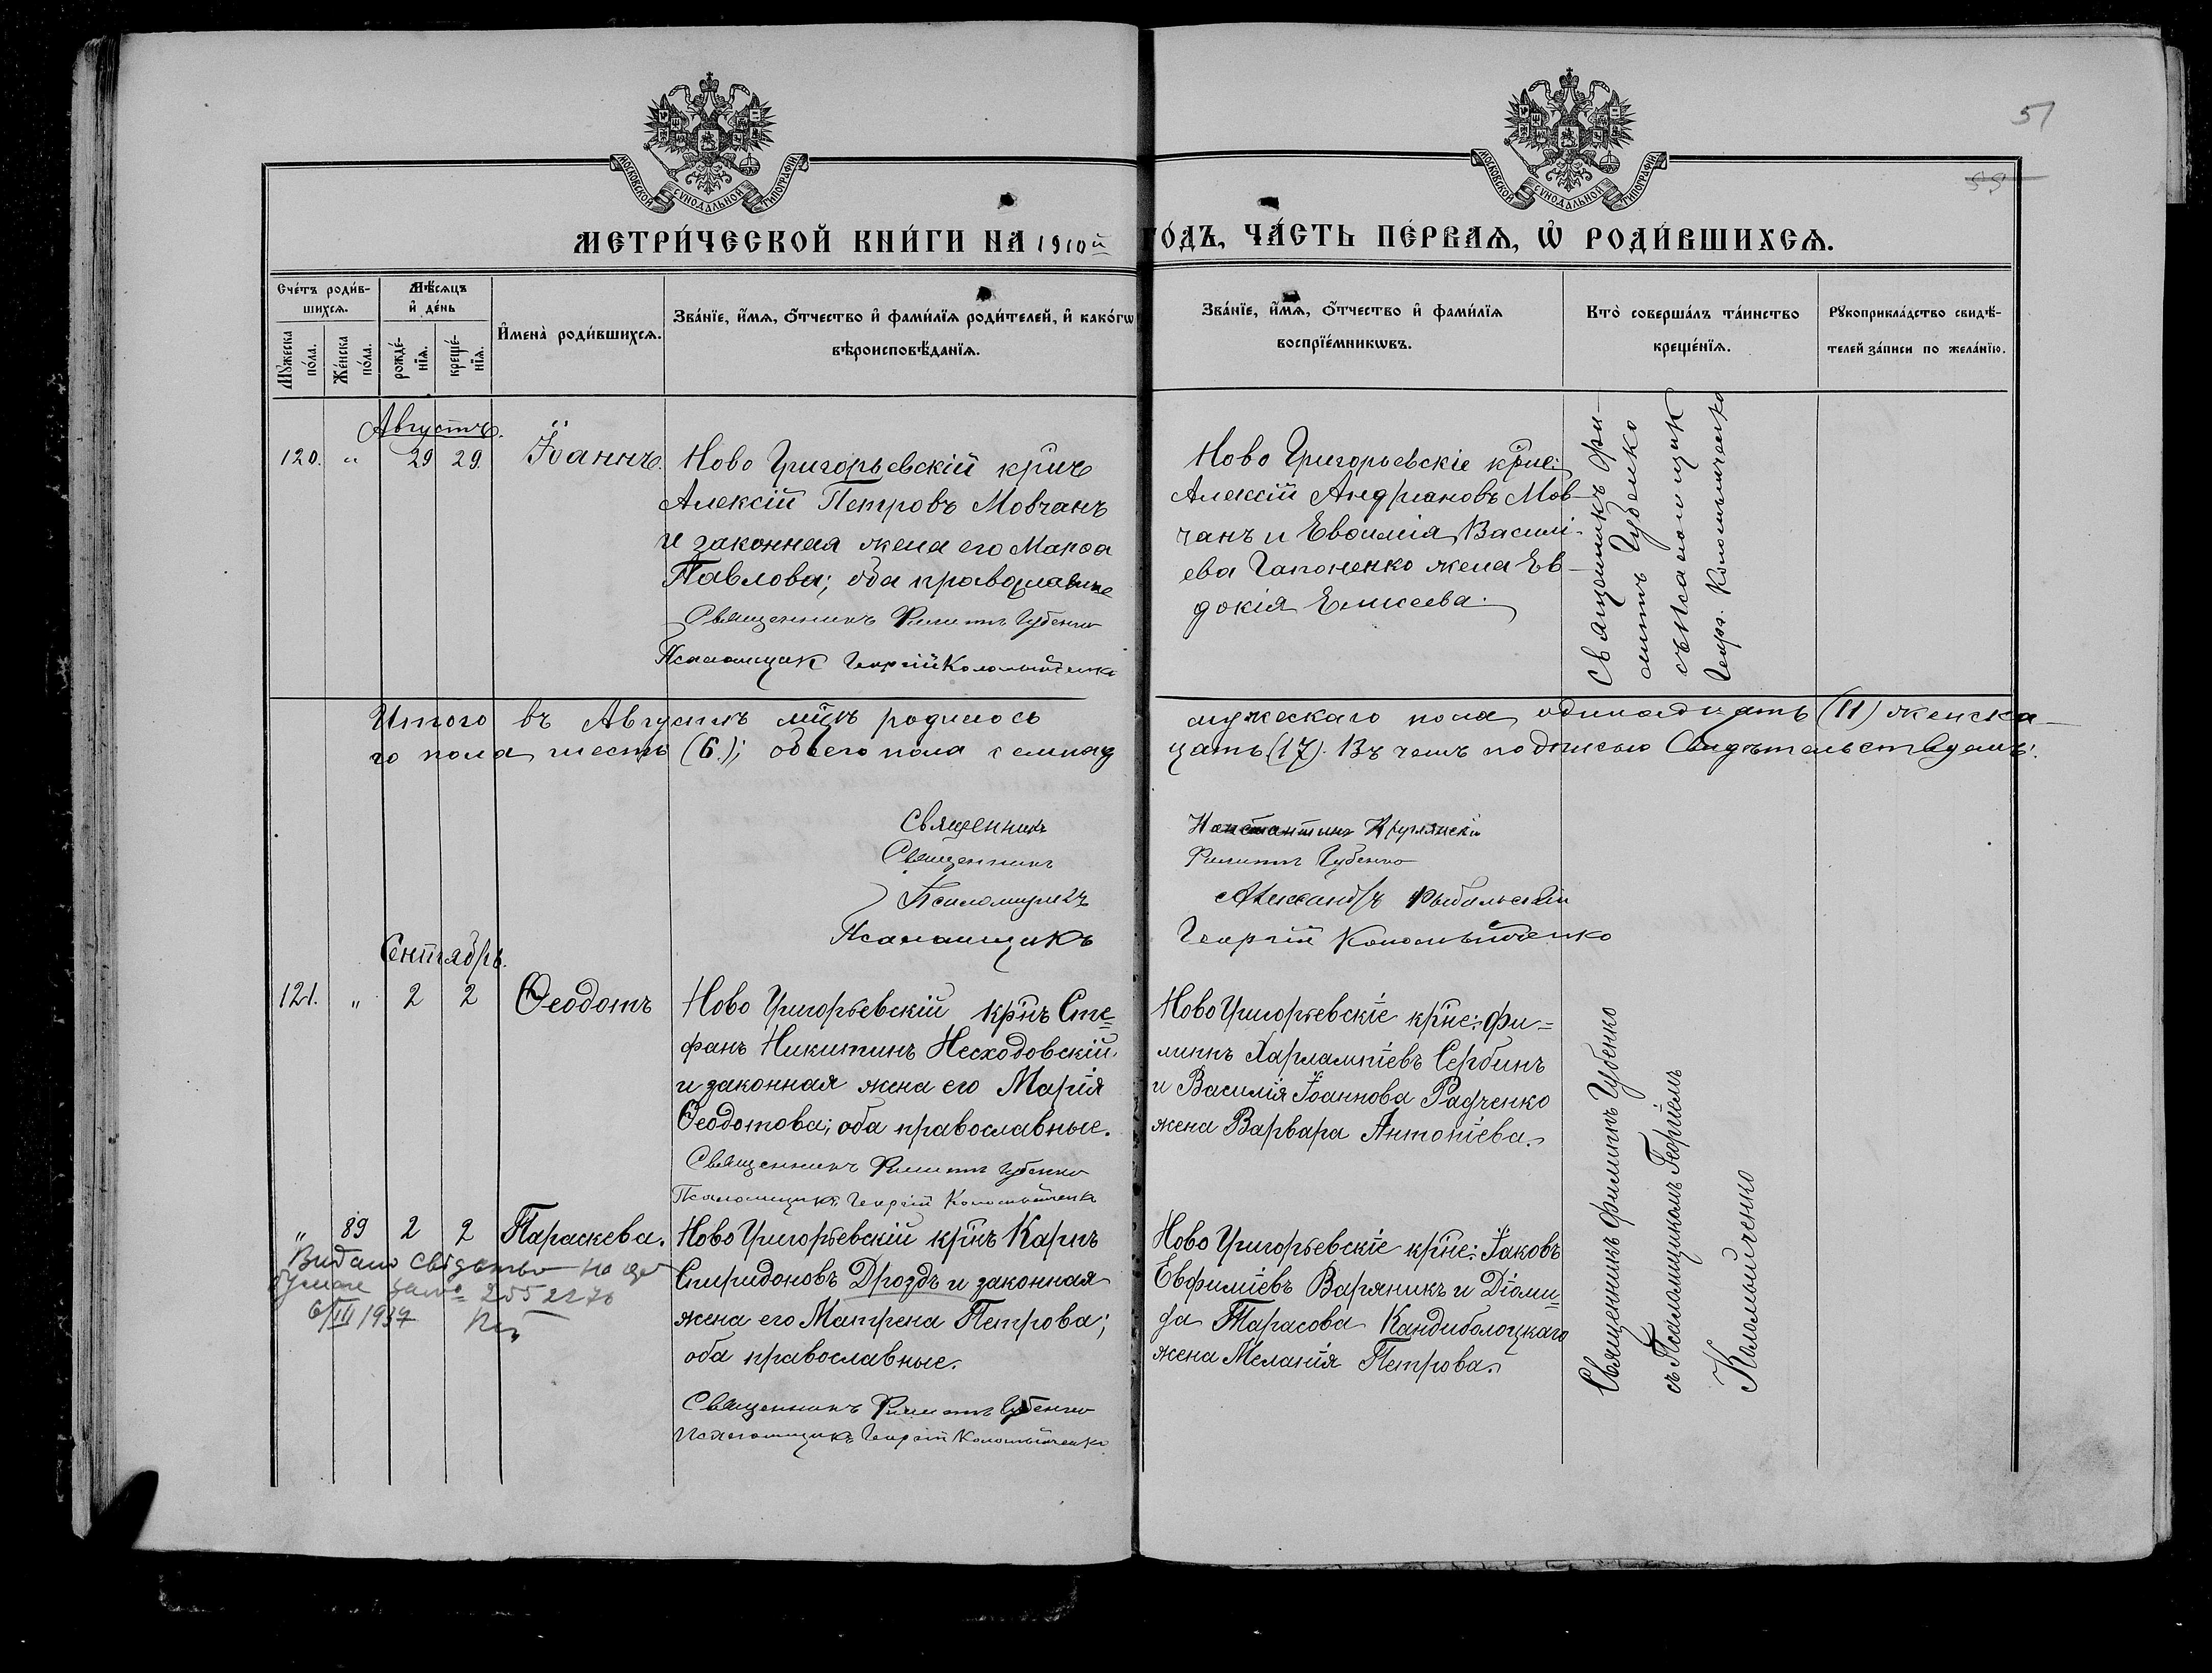 51
55
МОСКОВСКОЙ СУНОДАЛЬНОЙ ТИПОГРАФІИ
МОСКОВСКОЙ СУНОДАЛЬНОЙ ТИПОГРАФІИ
МЕТРИ́ЧЕСКОЙ КНИ́ГИ НА 1910й ГО́ДЪ, ЧА́СТЬ ПЕ́РВАѦ, Ѡ҆ РОДИ́ВШИХСѦ.
Сче́тъ роди́в-
шихсѧ.
Мꙋжеска по́ла.
Же́нска по́ла.
Мѣ́сѧцъ
и҆ де́нь
рожде́-
нїѧ.
креще́-
нїѧ.
И҆мена̀ роди́вшихсѧ.
Зва́нїе, и҆́мѧ, о҆́тчество и҆ фами́лїѧ роди́телей, и҆ како́гѡ
вѣроисповѣ́данїѧ.
Зва́нїе, и҆́мѧ, о҆́тчество и҆ фами́лїѧ
воспрїе́мникѡвъ.
Кто̀ соверша́лъ та́инство
креще́нїѧ.
Рꙋкоприкла́дство свидѣ́-
телей за́писи по жела́нїю.
Августъ.
120. " 29 29. Іоаннъ.
Ново Григорьевскій кр҃нъ
Алексій Петровъ Мовчанъ
и законная жена его Марѳа
Павлова; оба православные
Священникъ Филиппъ Губенко
Псаломщик Георгій Коломыйченко
Ново Григорьевскіе кр҃не:
Алексій Андріановъ Мов-
чанъ и Евѳимія Василі-
ева Гапоненко жена Ев-
докія Елисеева.
Священникъ Фи-
липпъ Губенко
съ Псаломщик
Георг. Коломыйченко
Итого въ Августѣ мц҃ѣ родилось мужескаго пола одинадцать (11) женска-
го пола шесть (6.); обоего пола семнад цать (17). Въ чемъ подписью Свидѣтельствуемъ:
Священникъ Константинъ
Священникъ Филиппъ Губенко
Псаломщикъ Александръ Рыбальскій
Псаломщикъ Георгій Коломыйченко
Сентябрь.
121. " 2 2 Ѳеодотъ
Ново Григорьевскій кр҃нъ Сте=
фанъ Никитинъ Несходовскій
и законная жена его Марія
Ѳеодотова; оба православные.
Священникъ Филиппъ Губенко
Псаломщикъ Георгій Коломыйченко
Ново Григорьевскіе кр҃не: Фи=
липпъ Харлампіевъ Сербинъ
и Василія Іоаннова Радченко
жена Варвара Антоніева.
" 89 2 2 Параскева.
Ново Григорьевскій кр҃нъ Карпъ
Спиридоновъ Дроздъ и законная
жена его Матрена Петрова;
оба православные.
Священникъ Филиппъ Губенко
Псаломщикъ Георгій Коломыйченко
Ново Григорьевскіе кр҃не: Іаковъ
Евфиміевъ Варяникъ и Діоми=
да Тарасова Кандиболоцкаго
жена Меланія Петрова.
Священникъ Филиппъ Губенко
съ Псаломщикомъ Георгіемъ
Коломыйченко
Видано
6/III 1937